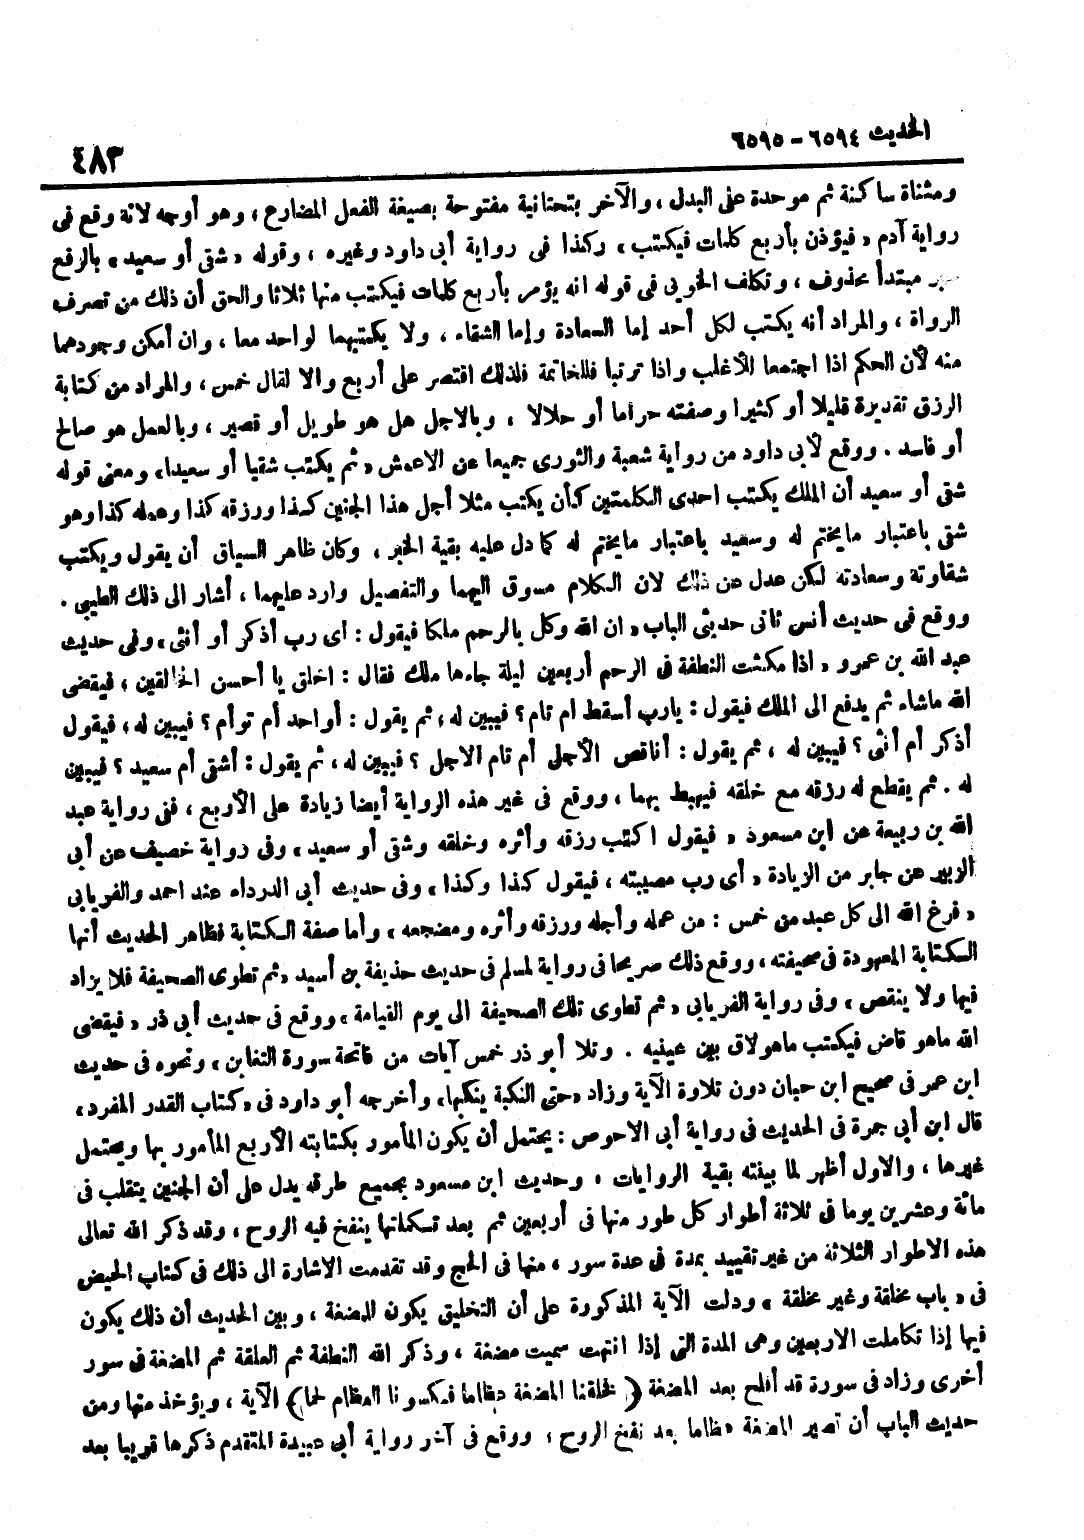 الحديث ٦٥٩٤ - ٦٥٩٥
٤٨٣
ومثناة ساكنة ثم موحدة على البدل ، والآخر بتحتانية مفتوحة بصيغة الفعل المضارع ، وهو أوجه لانه وقع فى
رواية آدم « فيؤذن بأربع كلمات فيكتب » وكذا فى رواية أبى داود وغيره ، وقوله « شقى أو سعيد » بالرفع
خبر مبتدأ محذوف ، وتكلف الخوبى فى قوله انه يؤمر بأربع كلمات فيكتب منها ثلاثا والحق أن ذلك من تصرف
الرواة ، والمراد أنه يكتب لكل أحد إما السعادة وإما الشقاء ، ولا يكتبهما لواحد معا ، وان أمكن وجودهما
منه لأن الحكم اذا اجتمعا للأغلب واذا ترتبا فللخاتمة فلذلك اقتصر على أربع والا لقال خمس ، والمراد من كتابة
الرزق تقديره قليلا أو كثيرا وصفته حراما أو حلالا ، وبالاجل هل هو طويل أو قصير ، وبالعمل هو صالح
أو فاسد . ووقع لأبى داود من رواية شعبة والثورى جميعا عن الاعمش « ثم يكتب شقيا أو سعيدا » ومعنى قوله
شقى أو سعيد أن الملك يكتب احدى الكلمتين كأن يكتب مثلا أجل هذا الجنين كذا ورزقه كذا وعمله كذا وهو
شقى باعتبار ما يختم له وسعيد باعتبار ما يختم له كما دل عليه بقية الخبر ، وكان ظاهر السياق أن يقول ويكتب
شقاوته وسعادته لكن عدل عن ذلك لان الكلام مسوق اليهما والتفصيل وارد عليهما ، أشار الى ذلك الطيبى .
ووقع فى حديث أنس ثانى حديثى الباب « ان الله وكل بالرحم ملكا فيقول : اى رب أذكر أو أنثى » وفى حديث
عبد الله بن عمرو « اذا مكثت النطفة فى الرحم أربعين ليلة جاءها ملك فقال : اخلق يا أحسن الخالقين ، فيقضى
الله ماشاء ثم يدفع الى الملك فيقول : يارب أسقط أم تام ؟ فيبين له ، ثم يقول : أواحد أم توأم ؟ فيبين له ، فيقول
أذكر أم أنثى ؟ فيبين له ، ثم يقول : أناقص الأجل أم تام الاجل ؟ فيبين له ، ثم يقول : أشقى أم سعيد ؟ فيبين
له . ثم يقطع له رزقه مع خلقه فيهبط بهما ، ووقع فى غير هذه الرواية أيضا زيادة على الأربع ، ففى رواية عبد
الله بن ربيعة عن ابن مسعود « فيقول اكتب رزقه وأثره وخلقه وشقى أو سعيد » وفى رواية خصيف عن أبى
الزبير عن جابر من الزيادة « أى رب مصيبته ، فيقول كذا وكذا » وفى حديث أبى الدرداء عند احمد والفريابى
« فرغ الله الى كل عبد من خمس : من عمله وأجله ورزقه وأثره ومضجعه » وأما صفة الكتابة فظاهر الحديث أنها
الكتابة المعهودة فى صحيفته ، ووقع ذلك صريحا فى رواية لمسلم فى حديث حذيفة بن أسيد « ثم تطوى الصحيفة فلا يزاد
فيها ولا ينقص » وفى رواية الفريابى « ثم تطوى تلك الصحيفة الى يوم القيامة » ووقع فى حديث أبى ذر « فيقضى
الله ماهو قاض فيكتب ماهو لاق بين عينيه . وتلا أبو ذر خمس آيات من فاتحة سورة التغابن » ونحوه فى حديث
ابن عمر فى صحيح ابن حبان دون تلاوة الآية وزاد « حتى النكبة ينكبها » وأخرجه أبو داود فى « كتاب القدر المفرد ،
قال ابن أبى جمرة فى الحديث فى رواية أبى الاحوص : يحتمل أن يكون المأمور بكتابته الأربع المأمور بها ويحتمل
غيرها ، والاول أظهر لما بينته بقية الروايات ، وحديث ابن مسعود بجميع طرقه يدل على أن الجنين يتقلب فى
مائة وعشرين يوما فى ثلاثة أطوار كل طور منها فى أربعين ثم بعد تكملتها ينفخ فيه الروح ، وقد ذكر الله تعالى
هذه الاطوار الثلاثة من غير تقييد بمدة فى عدة سور ، منها فى الحج وقد تقدمت الاشارة الى ذلك فى كتاب الحيض
فى « باب مخلقة وغير مخلقة » ودلت الآية المذكورة على أن التخليق يكون للمضغة ، وبين الحديث أن ذلك يكون
فيها إذا تكاملت الاربعين وهى المدة التى إذا انتهت سميت مضغة ، وذكر الله النطفة ثم العلقة ثم المضغة فى سور
أخرى وزاد فى سورة قد أفلح بعد المضغة ﴿ فخلقنا المضغة عظاما فكسونا العظام لحما ﴾ الآية ، ويؤخذ منها ومن
حديث الباب أن تصير المضغة عظاما بعد نفخ الروح ، ووقع فى آخر رواية أبى عبيدة المتقدم ذكرها قريبا بعد